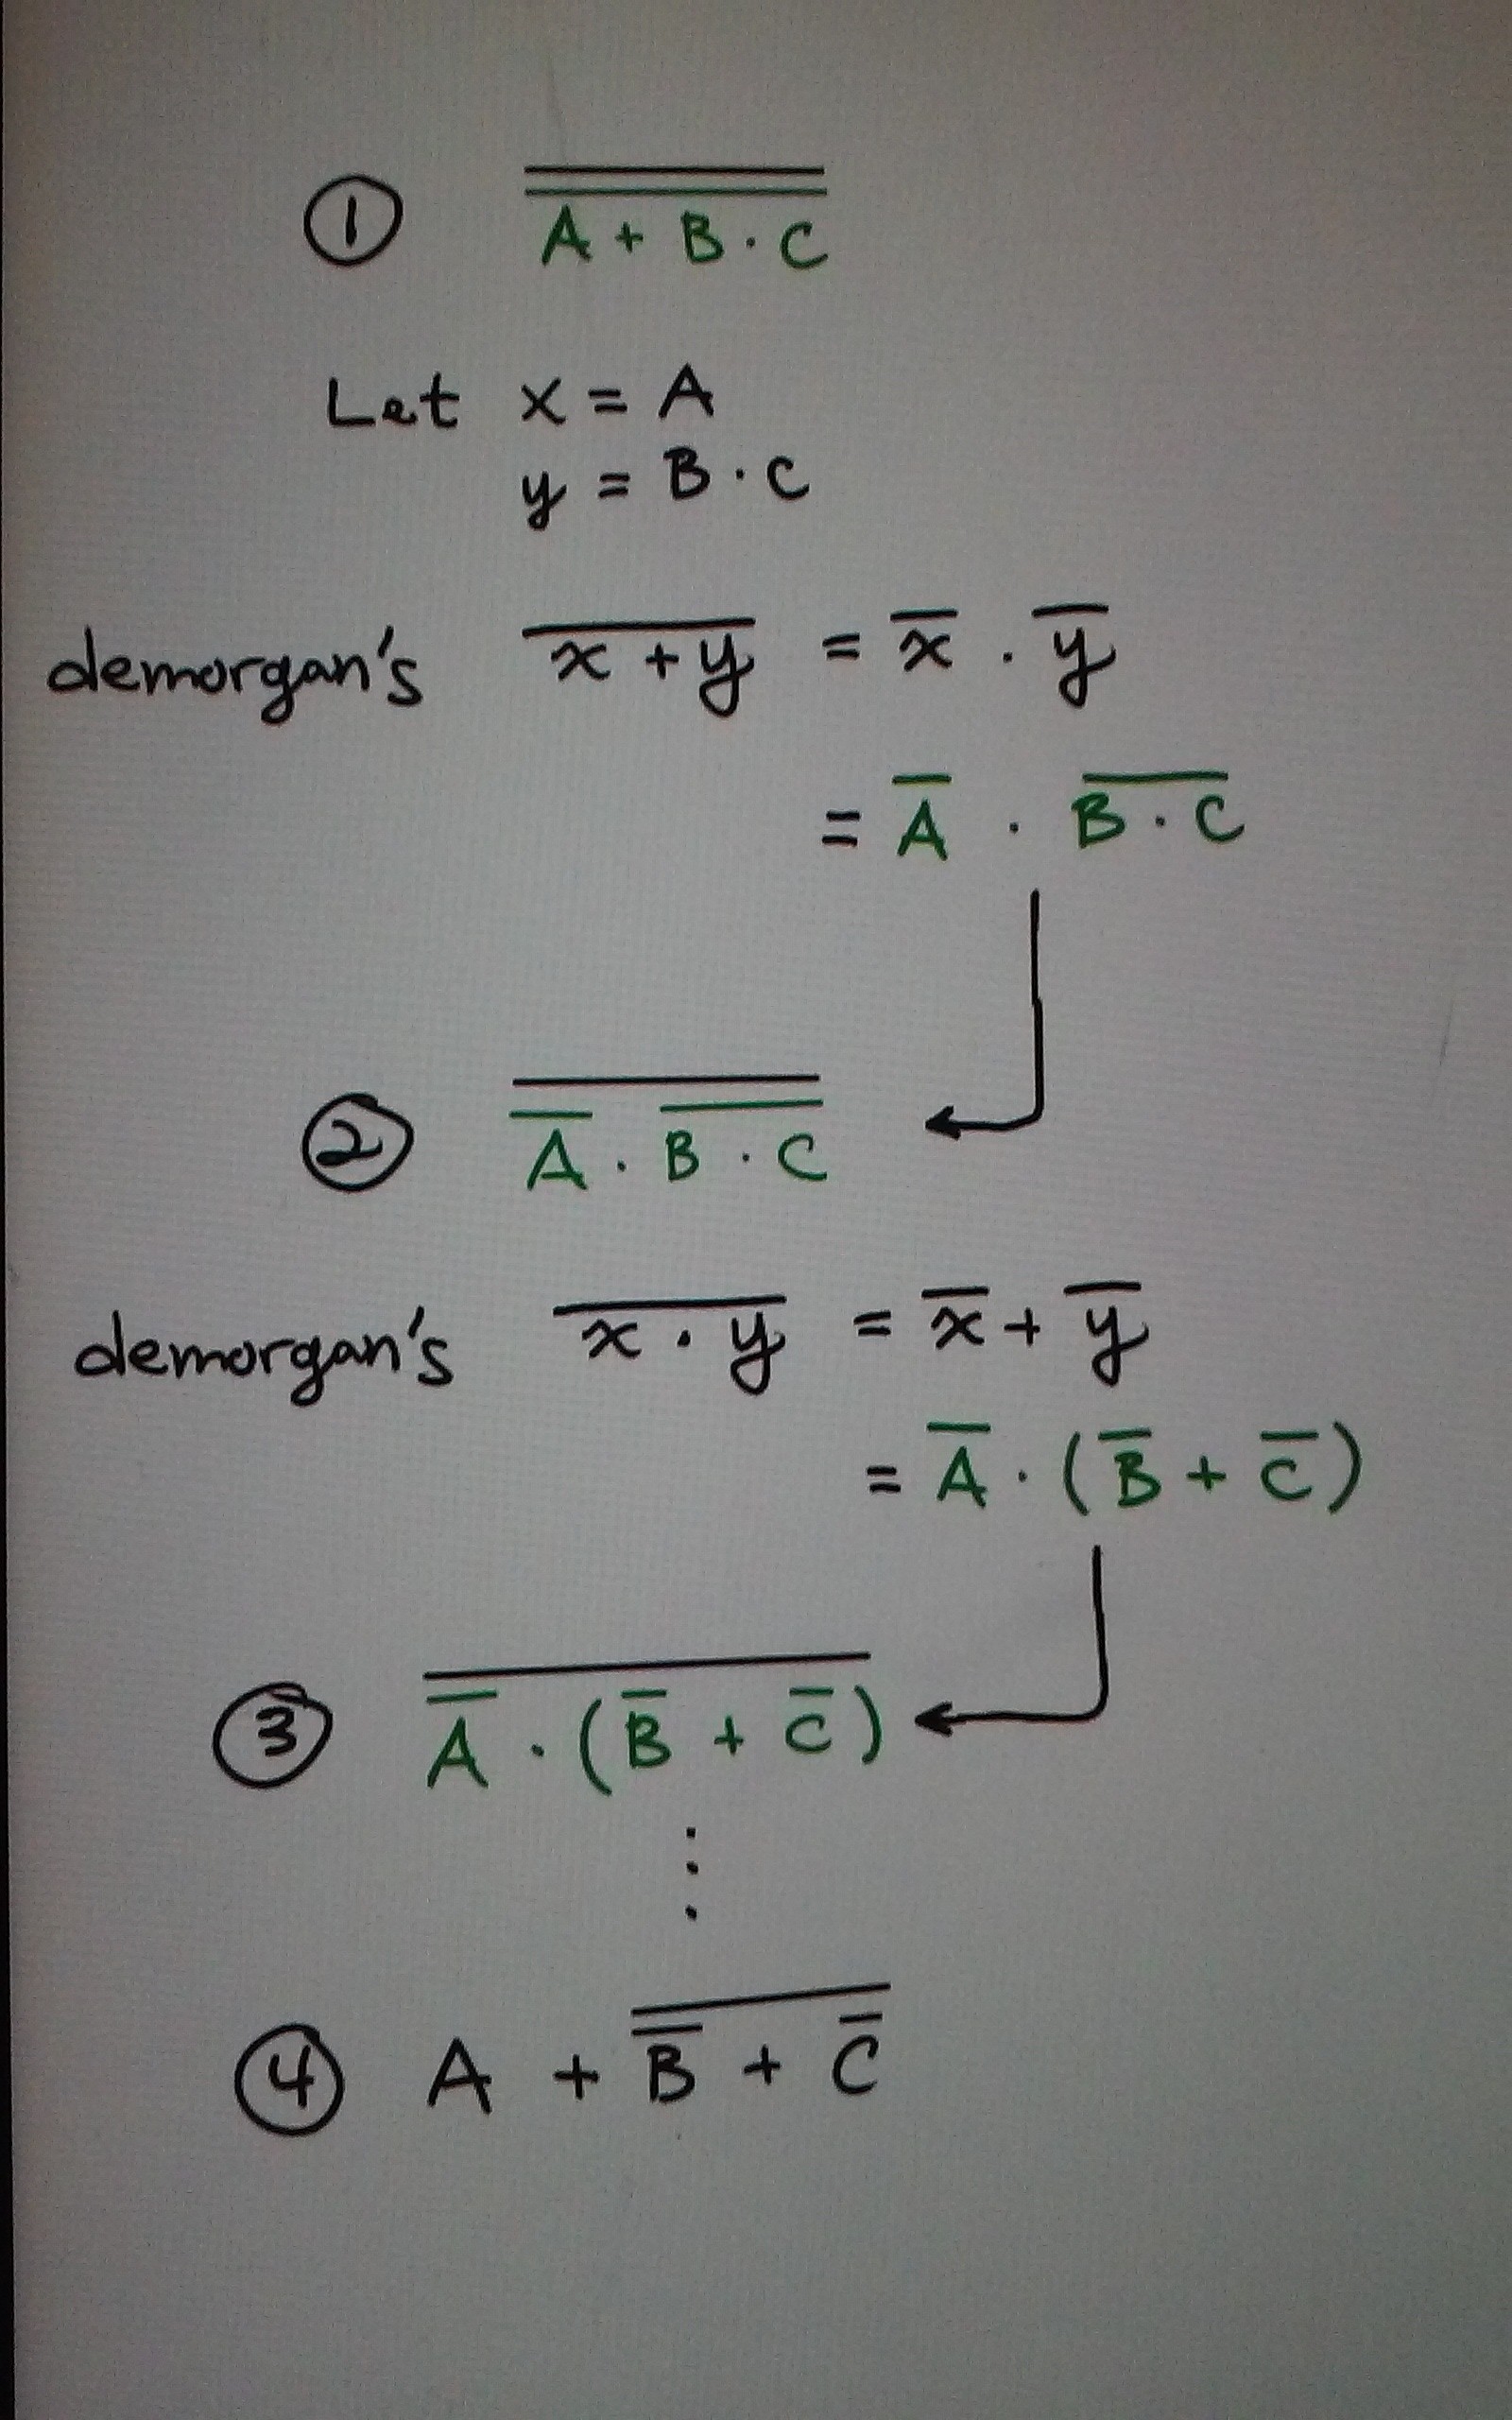 ① A̿ ̿+̿ ̿B̿ ̿·̿ ̿C̿
Let x = A
y = B · C
demorgan's x̅ ̅+̅ ̅y̅ = x̅ · y̅
= A̅ · B̅ ̅·̅ ̅C̅
② A̿ ̅·̅ ̅B̿ ̿·̿ ̿C̿
demorgan's x̅ ̅·̅ ̅y̅ = x̅ + y̅
= A̅ · (B̅ + C̅)
③ A̿ ̅·̅ ̅(̅B̿ ̅+̅ ̅C̿)̅
⋮
④ A + B̿ ̅+̅ ̅C̿